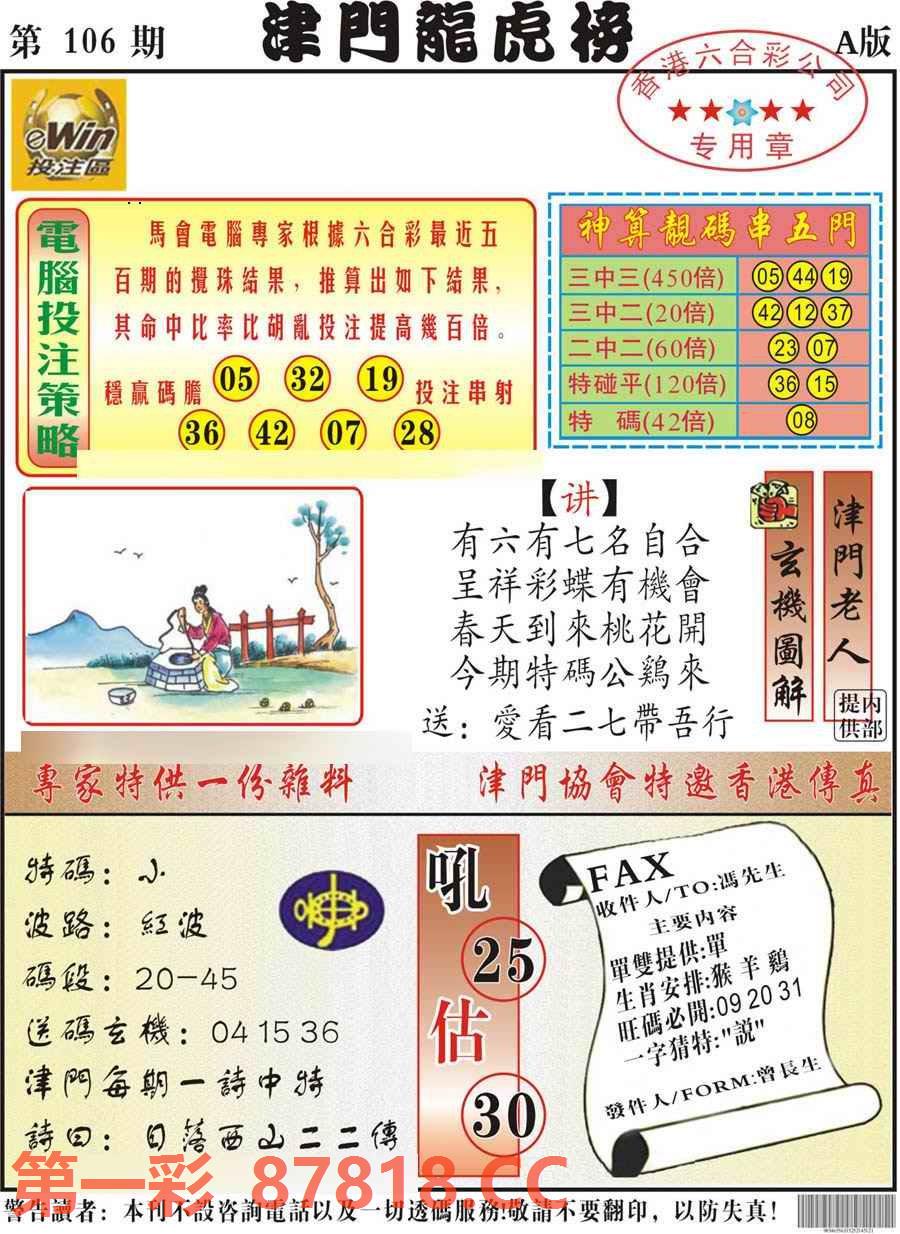 第 106 期
津門龍虎榜
A版
香港六合彩公司
专用章
eWin
投注區
電腦投注策略
馬會電腦專家根據六合彩最近五
百期的攪珠結果，推算出如下結果，
其命中比率比胡亂投注提高幾百倍。
穩贏碼膽 05 32 19 投注串射
36 42 07 28
神算靚碼串五門
三中三(450倍) 05 44 19
三中二(20倍) 42 12 37
二中二(60倍) 23 07
特碰平(120倍) 36 15
特 碼(42倍) 08
【讲】
有六有七名自合
呈祥彩蝶有機會
春天到來桃花開
今期特碼公鷄來
送：愛看二七帶吾行
玄機圖解
津門老人
内部提供
專家特供一份雜料
津門協會特邀香港傳真
特碼：小
波路：紅波
碼段：20-45
送碼玄機：04 15 36
津門每期一詩中特
詩曰：日落西山二二傳
吼
25
估
30
FAX
收件人/TO:馮先生
主要内容
單雙提供:單
生肖安排:猴 羊 鷄
旺碼必開:09 20 31
一字猜特:"説"
發件人/FORM:曾長生
第一彩 87818.CC
警告讀者：本刊不設咨詢電話以及一切透碼服務!敬請不要翻印，以防失真!